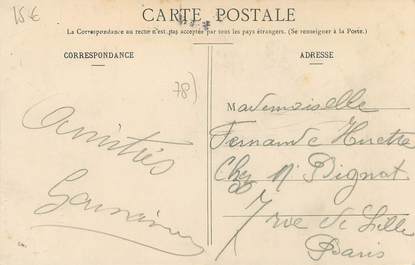 15€
CARTE POSTALE
La Correspondance au recto n'est pas acceptée par tous les pays étrangers. (Se renseigner à la Poste.)
CORRESPONDANCE
ADRESSE
78)
Amitiés
Mademoiselle
Fernande Huette
Chez Mr Pignat
7 rue de Lille
Paris